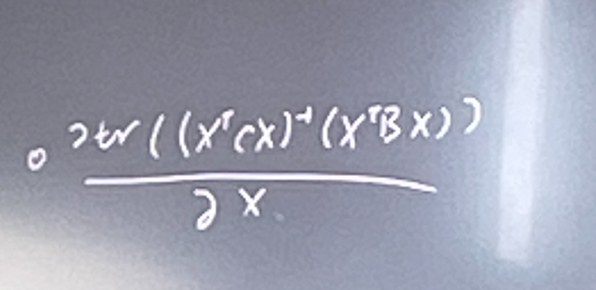 ∘ ∂tr((XᵀCX)⁻¹(XᵀBX))
∂X